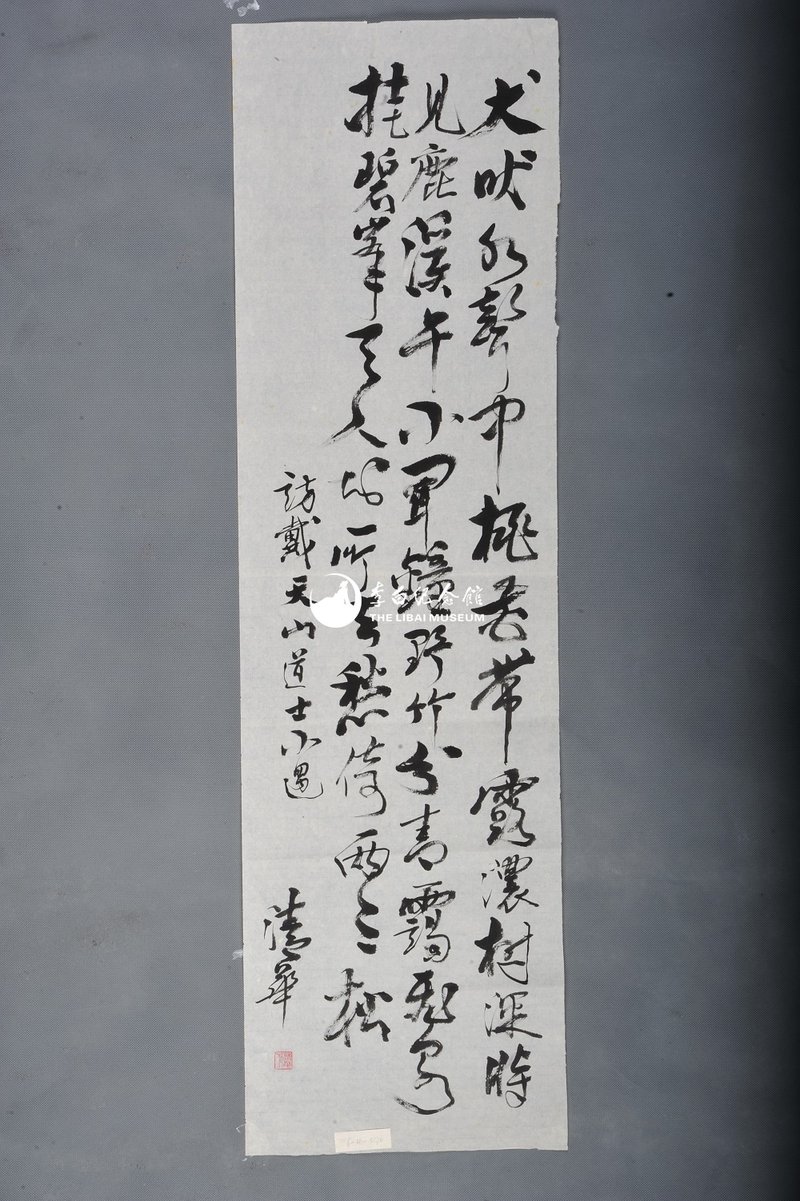 犬吠水聲中桃花帶露濃樹深時
見鹿溪午不聞鐘野竹分青靄飛泉
挂碧峯無人知所去愁倚兩三松
訪戴天山道士不遇
清華
李白紀念館
THE LIBAI MUSEUM